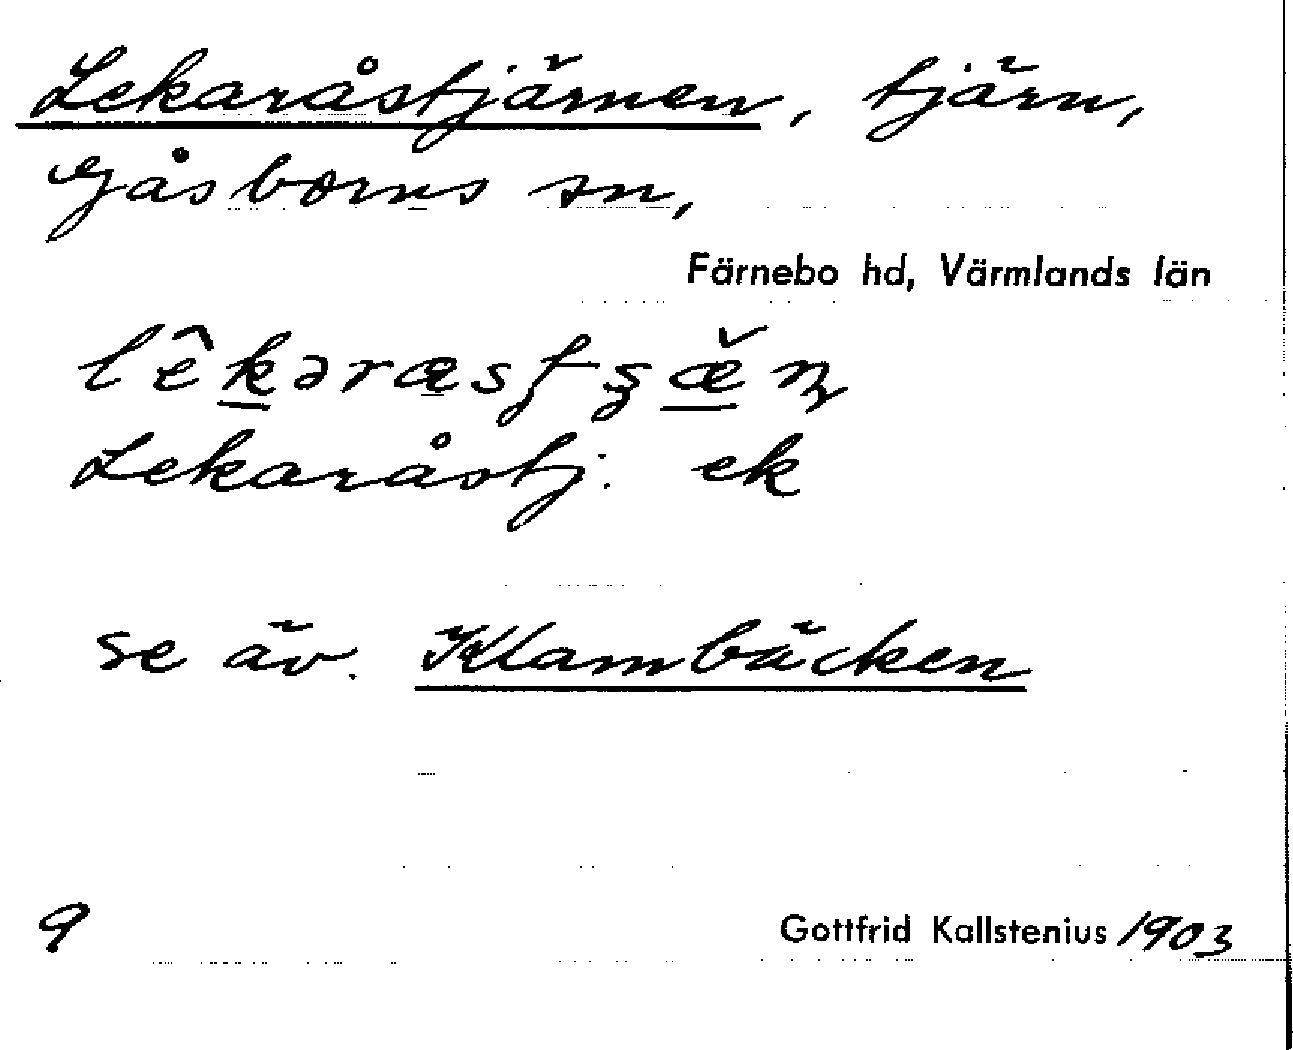 Lekaråstjärnen, tjärn,
Gåsborns sn,
Färnebo hd, Värmlands län
lêkəræsʄʂæ̌ɳ
Lekaråstj: ek
se äv. Klambäcken
9 Gottfrid Kallstenius 1903